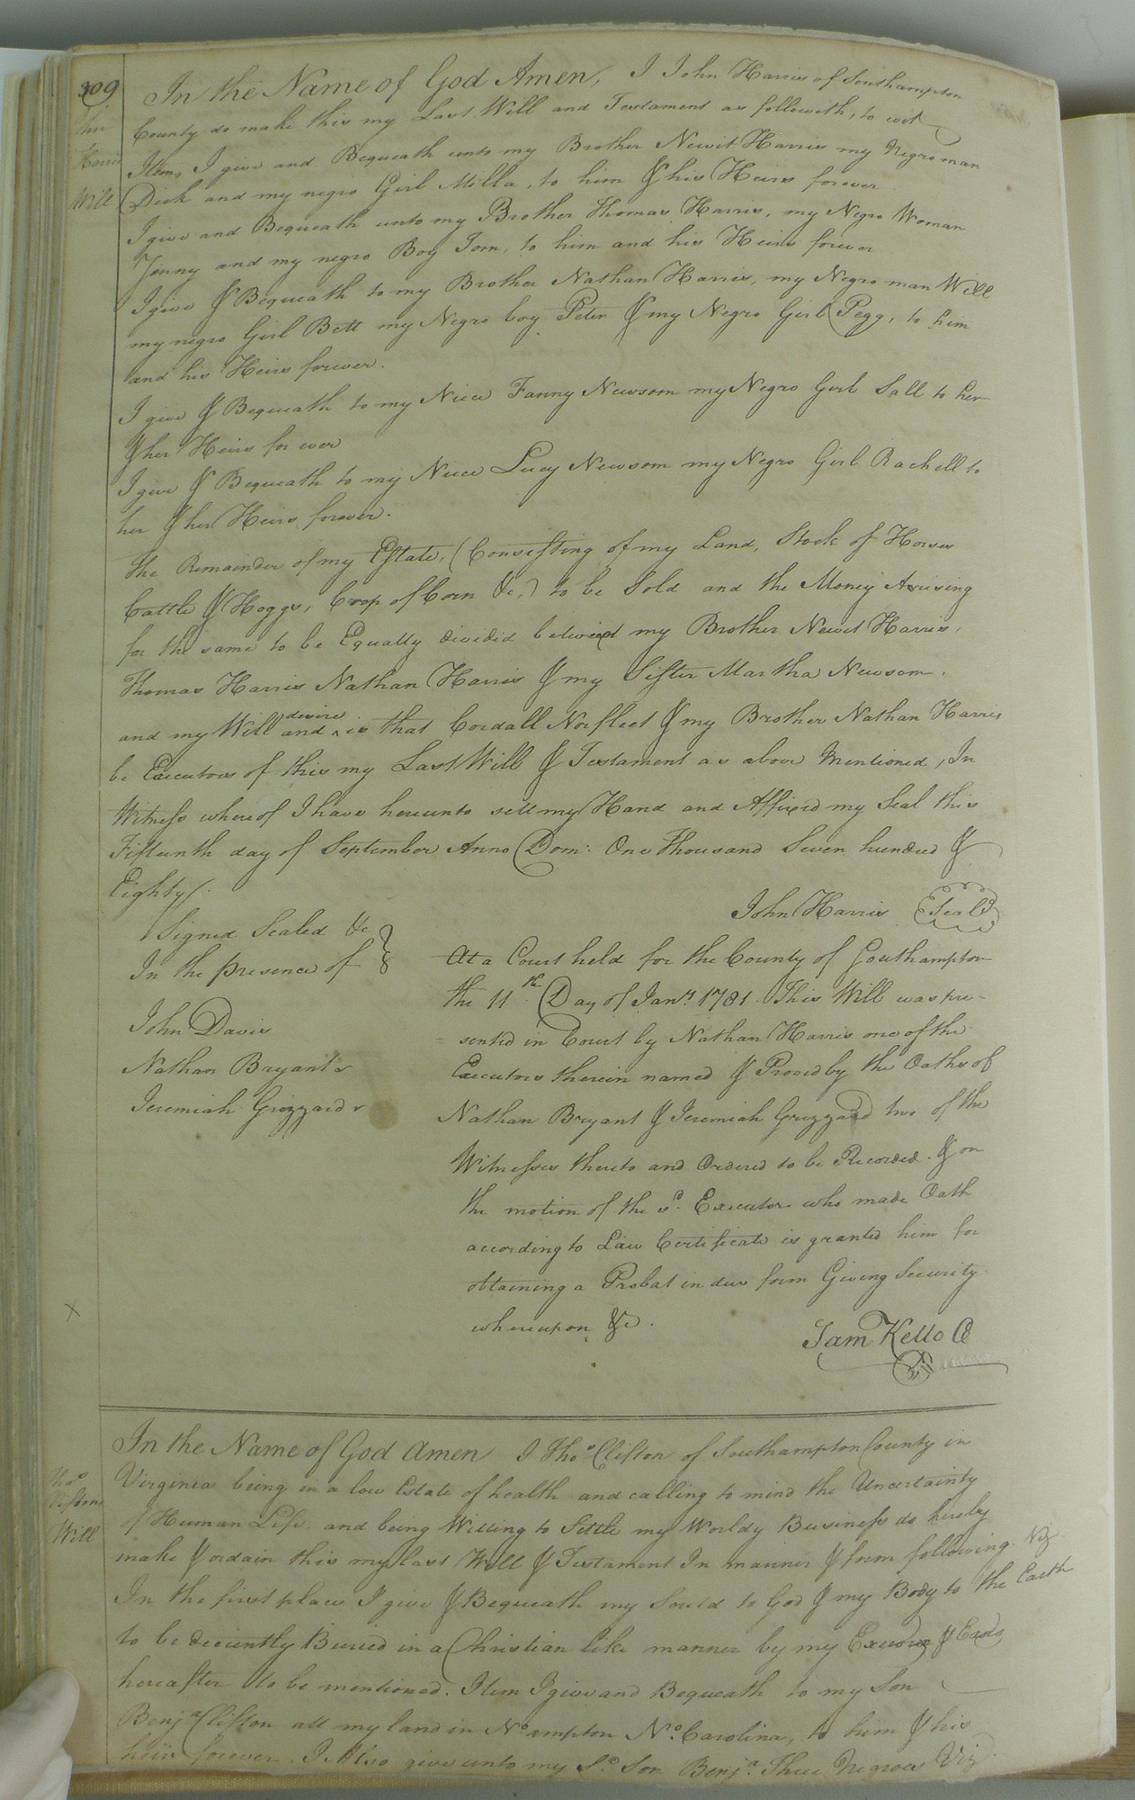 309
Jno
Harris
Will
In the Name of God Amen, I John Harris of Southampton
County do make this my Last Will and Testament as followeth, to wit
Item, I give and Bequeath unto my Brother Newit Harris my Negro man
Dick and my negro Girl Milla, to him & his Heirs forever
I give and Bequeath unto my Brother Thomas Harris, my Negro Woman
Jenny and my negro Boy Tom, to him and his Heirs forever
I give & Bequeath to my Brother Nathan Harris, my Negro man Will
my negro Girl Bett my Negro boy Peter & my Negro Girl Pegg, to him
and his Heirs forever.
I give & Bequeath to my Niece Fanny Newsom my Negro Girl Sall to her
& her Heirs for ever
I give & Bequeath to my Niece Lucy Newsom my Negro Girl Rachell to
her & her Heirs forever.
The Remainder of my Estate, (Consisting of my Land, Stock of Horses
Cattle & Hoggs, Crop of Corn &c.) to be Sold and the Money Arising
for the same to be Equally divided betwixt my Brother Newit Harris,
Thomas Harris Nathan Harris & my Sister Martha Newsom.
and my Will and desire is that Cordall Norfleet & my Brother Nathan Harris
be Executors of this my Last Will & Testament as above Mentioned, In
Witness whereof I have hereunto sett my Hand and Affixed my Seal this
Fifteenth day of September Anno Dom: One Thousand Seven hundred &
Eighty.
John Harris Seal
Signed Sealed &c
In the presence of
John Davis
Nathan Bryant
Jeremiah Grizzard
At a Court held for the County of Southampton
the 11th Day of Jany 1781 This Will was pre-
sented in Court by Nathan Harris one of the
Executors therein named & Proved by the Oaths of
Nathan Bryant & Jeremiah Grizzard two of the
Witnesses thereto and Ordered to be Recorded. & on
the motion of the sd. Executor who made Oath
according to Law Certificate is granted him for
obtaining a Probat in due form Giving Security
whereupon &c.
Sam Kello C
Thos
Cliftons
Will
In the Name of God Amen I Thos Clifton of Southampton County in
Virginia being in a low Estate of health and calling to mind the Uncertainty
of Human Life, and being Willing to Settle my Worldy Business do hereby
make & ordain this my last Will & Testament In manner & form following Viz
In the first place I give & Bequeath my Sould to God & my Body to the Earth
to be decently Buried in a Christian like manner by my
hereafter to be mentioned. Item I give and Bequeath to my Son
Benja Clifton all my land in No ampton No Carolina, to him & his
heir forever. I Also give unto my Sd Son Benja. Three Negroes Viz.